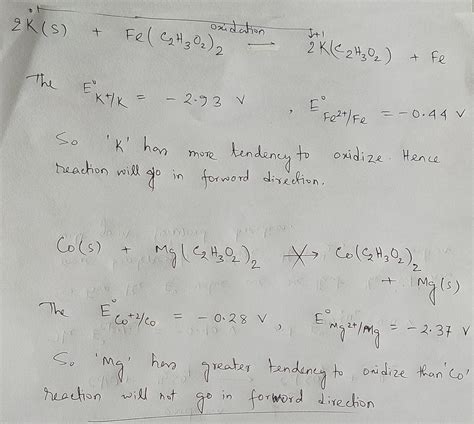 oxidation
2K(s) + Fe(C₂H₃O₂)₂ ⟶ 2K(C₂H₃O₂) + Fe
The E°K⁺/K = − 2.93 V , E°Fe²⁺/Fe = −0.44 V
So 'K' has more tendency to oxidize. Hence
reaction will go in forword direction.
Co(s) + Mg(C₂H₃O₂)₂ ⟶ Co(C₂H₃O₂)₂
+ Mg(s)
The E°Co⁺²/Co = − 0.28 V , E°Mg²⁺/Mg = − 2.37 V
So 'Mg' has greater tendency to oxidize than 'Co'
reaction will not go in forword direction